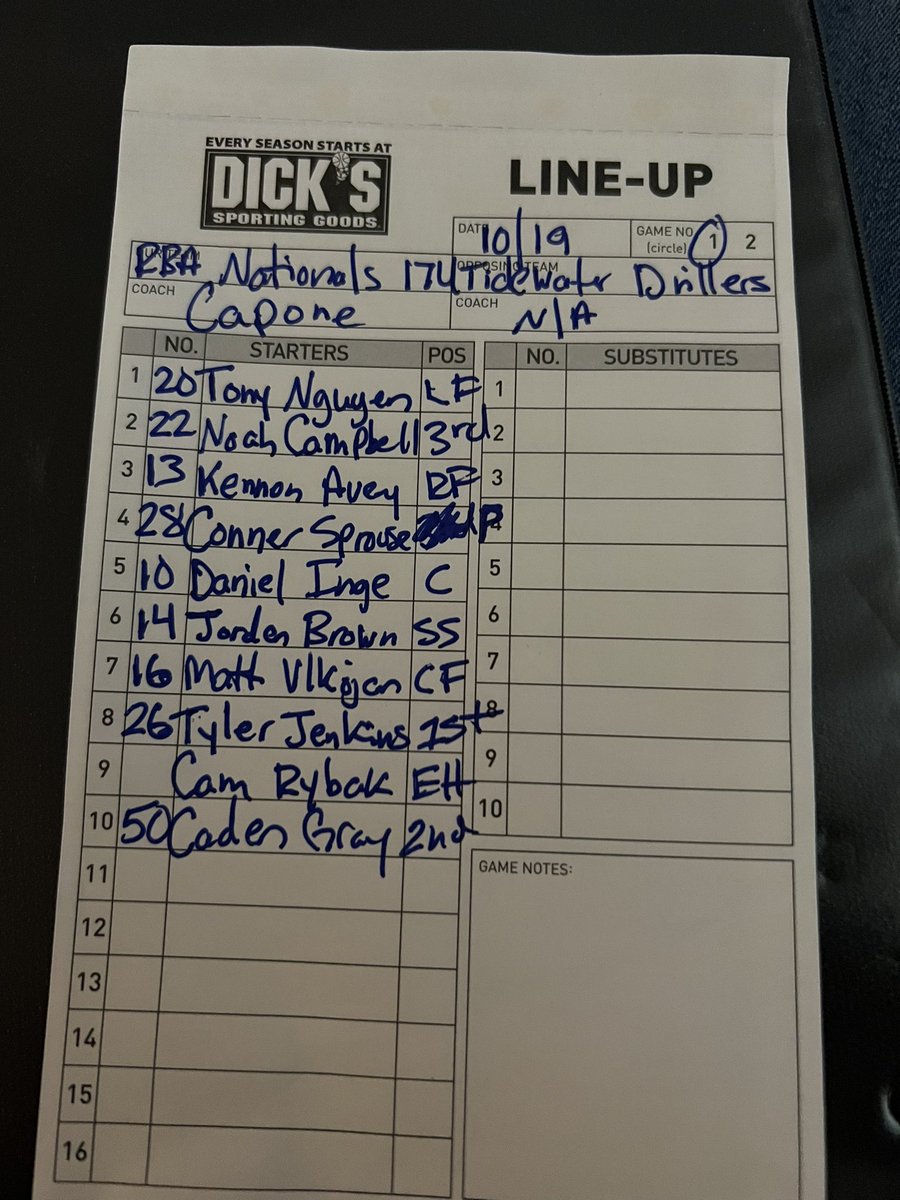 EVERY SEASON STARTS AT
DICK'S
SPORTING GOODS
LINE-UP
DATE 10/19 GAME NO. (circle) 1 2
RBA Nationals 17U OPPOSING TEAM Tidewater Drillers
COACH Capone COACH N/A
NO. STARTERS POS NO. SUBSTITUTES
1 20 Tony Nguyen LF 1
2 22 Noah Campbell 3rd 2
3 13 Kennon Avey RF 3
4 28 Conner Sprouse P 4
5 10 Daniel Inge C 5
6 14 Jorden Brown SS 6
7 16 Matt CF 7
8 26 Tyler Jenkins 1st 8
9 Cam Rybak EH 9
10 50 Caden Gray 2nd 10
11
GAME NOTES:
12
13
14
15
16